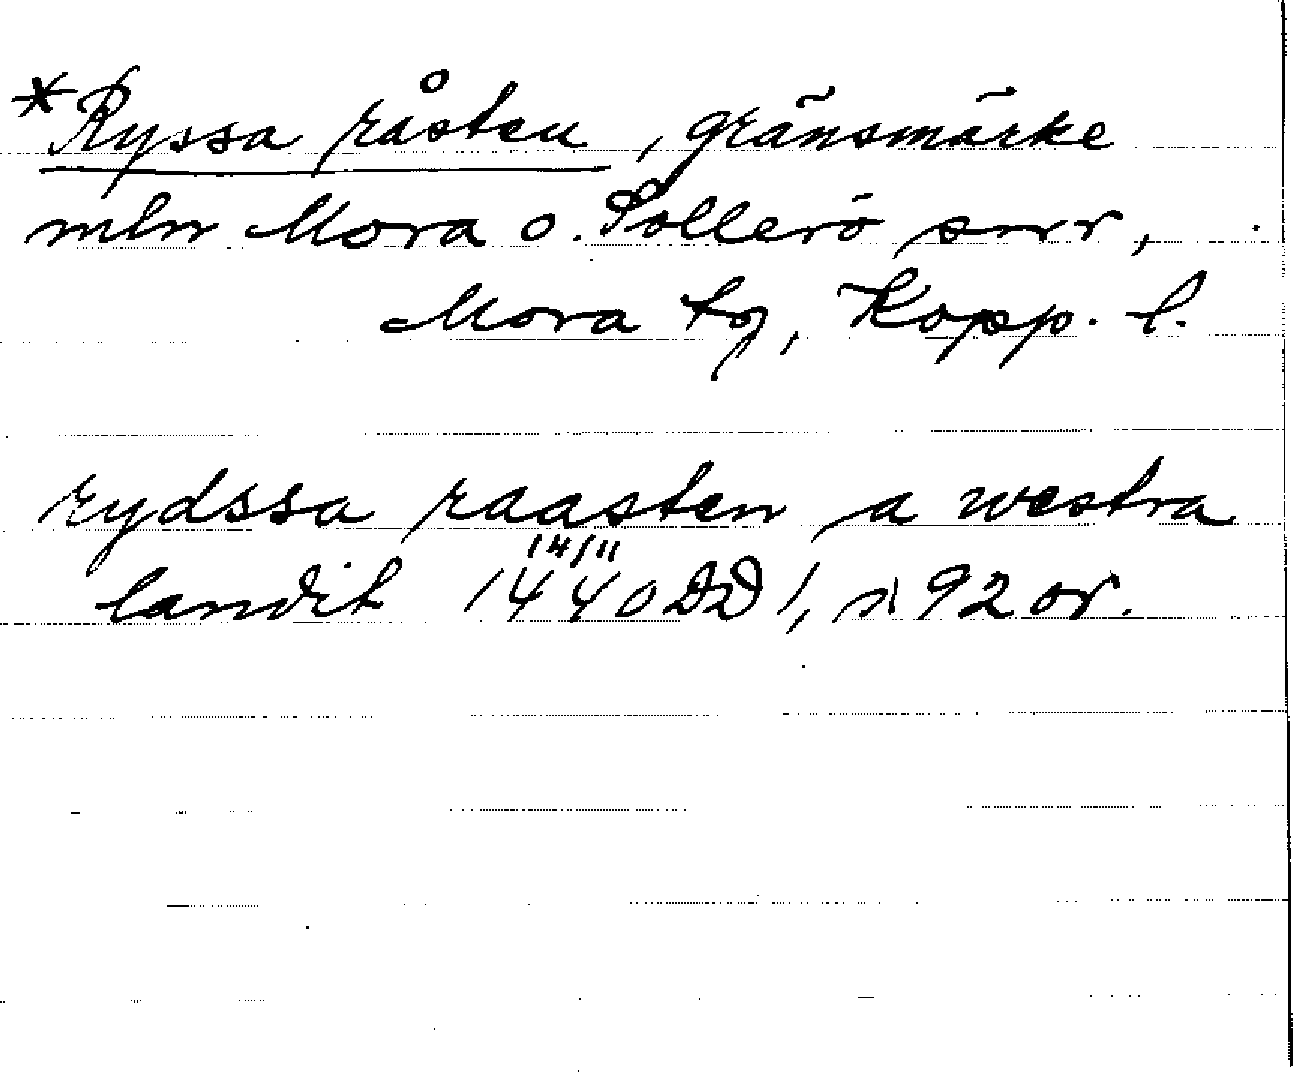 *Ryssa råsten, gränsmärke
mln Mora o. Sollerö snr,
Mora tg, Kopp. l.
rydssa raasten a westra
14/11
landit 1440 DD 1, s 92 or.